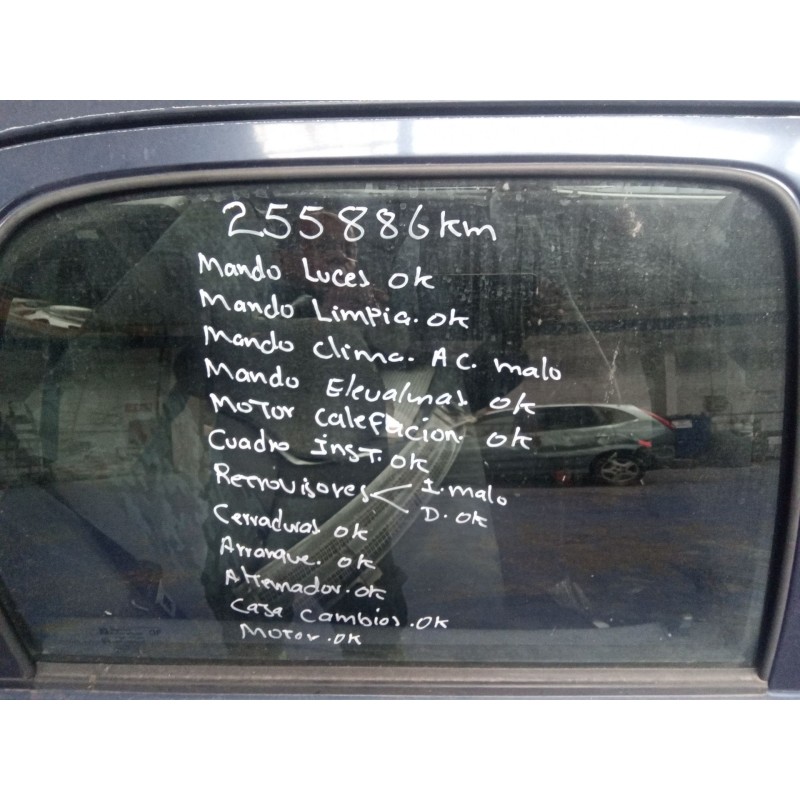 255886km
Mando Luces ok
Mando Limpia. ok
Mando clima. AC. malo
Mando Elevalunas ok
Motor calefacion. ok
Cuadro inst. ok
Retrovisores < I. malo
D. ok
Cerraduras ok
Arranque. ok
Alternador. ok
Caja cambios. ok
Motor. ok